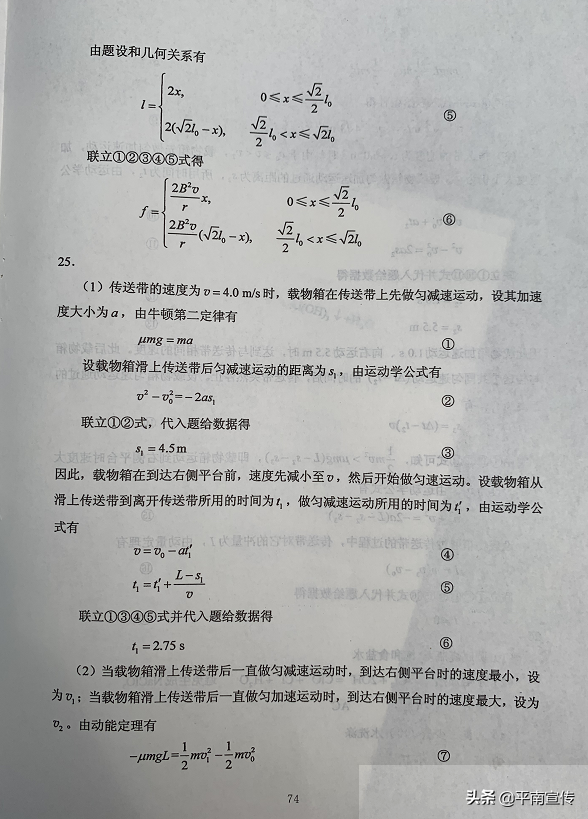 由题设和几何关系有
l = { 2x, 0≤x≤√2/2 l₀
2(√2l₀−x), √2/2 l₀<x≤√2l₀ ⑤
联立①②③④⑤式得
f = { 2B²v/r x, 0≤x≤√2/2 l₀
2B²v/r (√2l₀−x), √2/2 l₀<x≤√2l₀ ⑥
25.
（1）传送带的速度为 v = 4.0 m/s 时，载物箱在传送带上先做匀减速运动，设其加速
度大小为 a，由牛顿第二定律有
μmg = ma ①
设载物箱滑上传送带后匀减速运动的距离为 s₁，由运动学公式有
v² − v₀² = −2as₁ ②
联立①②式，代入题给数据得
s₁ = 4.5 m ③
因此，载物箱在到达右侧平台前，速度先减小至 v，然后开始做匀速运动。设载物箱从
滑上传送带到离开传送带所用的时间为 t₁，做匀减速运动所用的时间为 t₁′，由运动学公
式有
v = v₀ − at₁′ ④
t₁ = t₁′ + (L−s₁)/v ⑤
联立①③④⑤式并代入题给数据得
t₁ = 2.75 s ⑥
（2）当载物箱滑上传送带后一直做匀减速运动时，到达右侧平台时的速度最小，设
为 v₁；当载物箱滑上传送带后一直做匀加速运动时，到达右侧平台时的速度最大，设为
v₂。由动能定理有
−μmgL = 1/2 mv₁² − 1/2 mv₀² ⑦
74
头条 @平南宣传